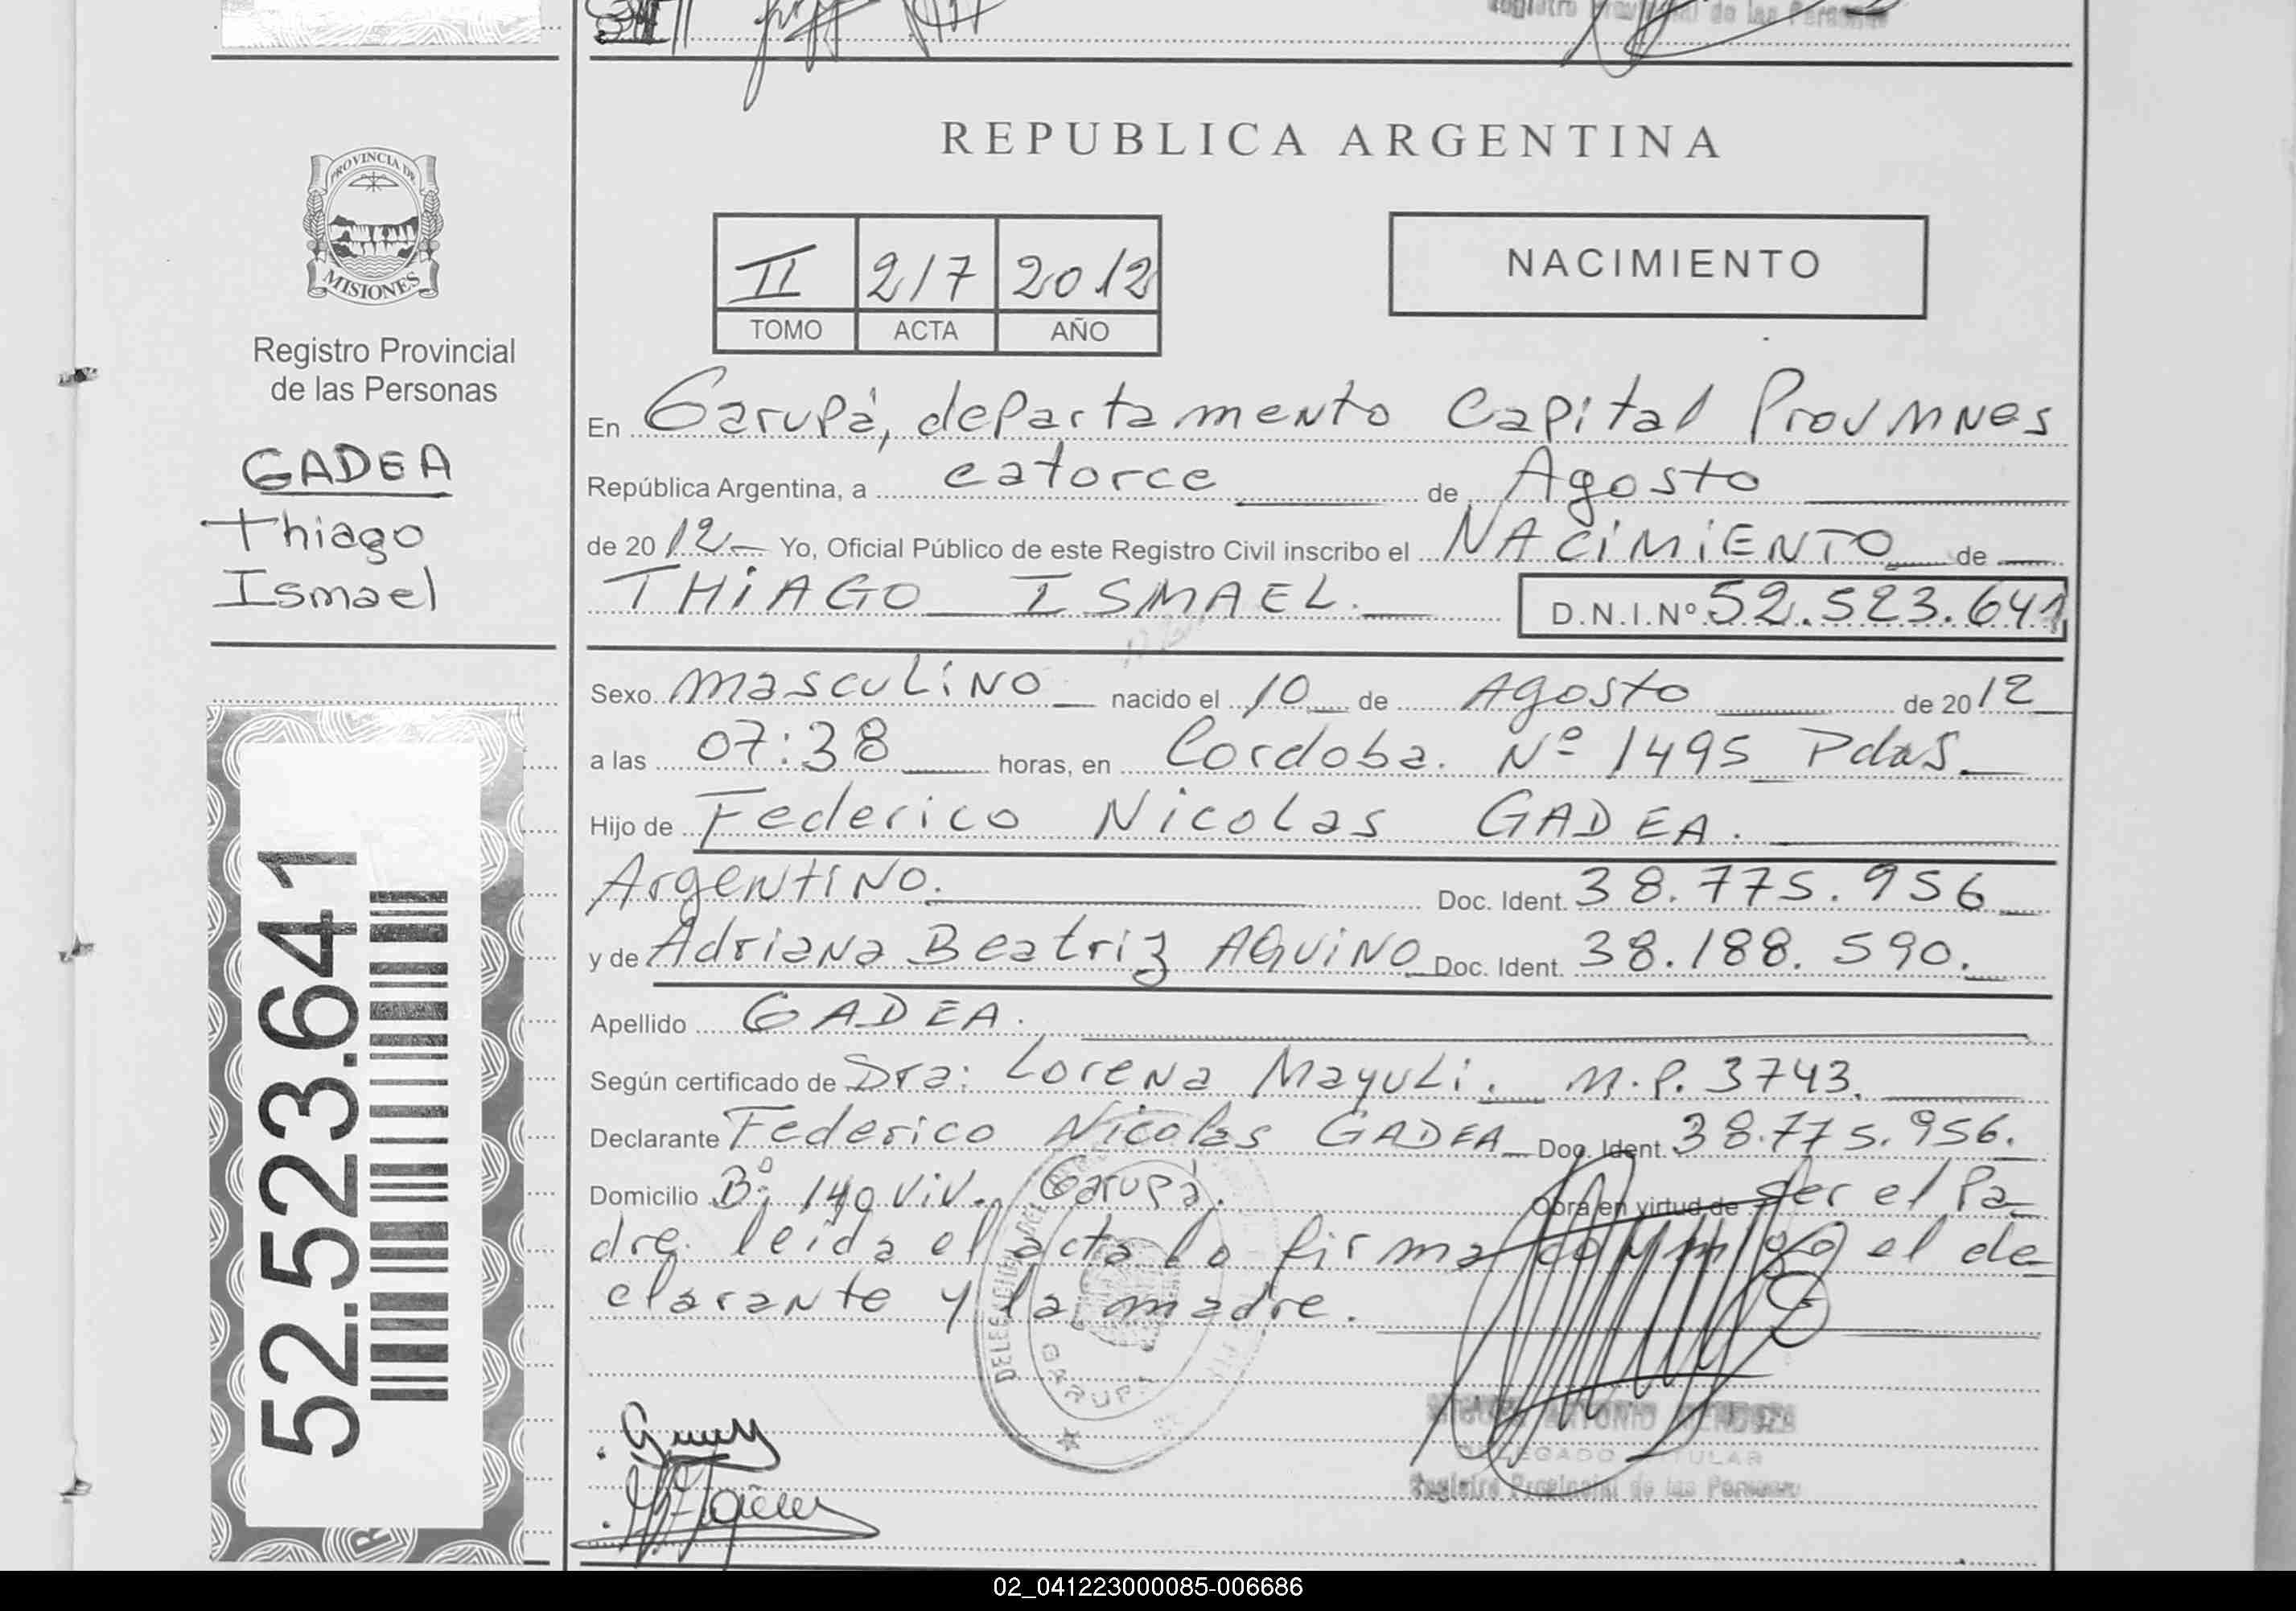 Registro Provincial de las Personas
REPUBLICA ARGENTINA
PROVINCIA DE
MISIONES
Registro Provincial
de las Personas
GADEA
Thiago
Ismael
52.523.641
II 217 2012
TOMO ACTA AÑO
NACIMIENTO
En Garupà, departamento Capital Prov MNes
República Argentina, a catorce de Agosto
de 20 12 Yo, Oficial Público de este Registro Civil inscribo el NACIMIENTO de
THIAGO ISMAEL. D.N.I.Nº 52.523.641
Sexo masculino nacido el 10 de Agosto de 2012
a las 07:38 horas, en Cordoba. Nº 1495 Pdas.
Hijo de Federico Nicolas GADEA.
Argentino. Doc. Ident. 38.775.956
y de Adriana Beatriz AQUINO Doc. Ident. 38.188.590.
Apellido GADEA.
Según certificado de Dra: Lorena Mayuli. M.P. 3743.
Declarante Federico Nicolas GADEA Doc. Ident. 38.775.956.
Domicilio Bº; 140 viv. Garupà. Obra en virtud de ser el Pa-
dre. leida el acta lo firma conmigo el de-
clarante y la madre.
ANTONIO MENDOZA
DELEGADO TITULAR
Registro Provincial de las Personas
GARUPA
02_041223000085-006686